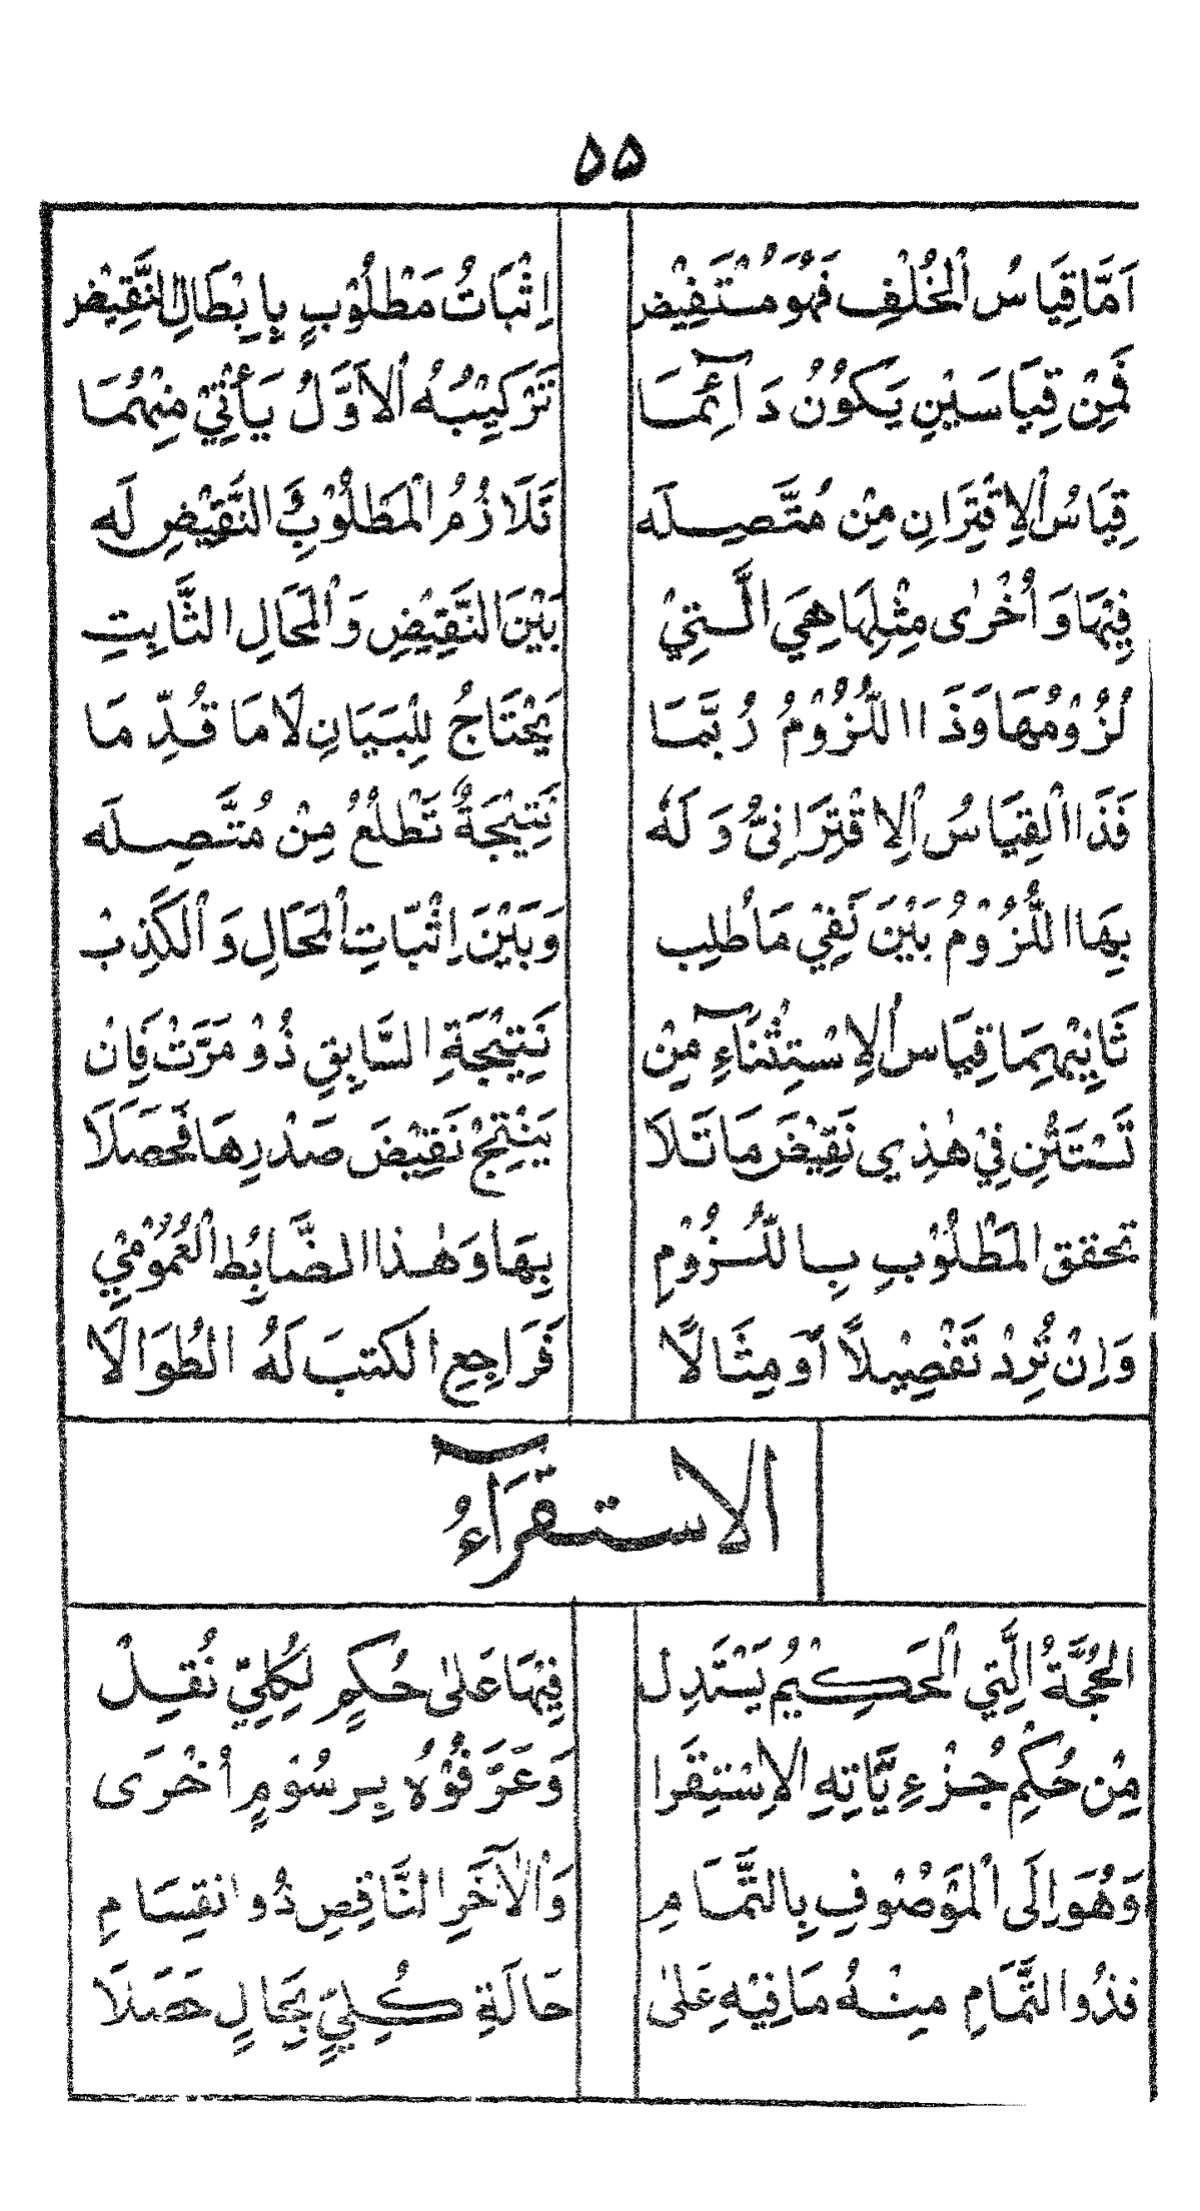 ۵۵
اَمَّا قِيَاسُ الْخُلْفِ فَهُوَ مُسْتَفِيْض اِثْبَاتُ مَطْلُوْبٍ بِاِبْطَالِ النَّقِيْض
فَمِنْ قِيَاسَيْنِ يَكُوْنُ دَآئِمَا تَرْكِيْبُهُ الْاَوَّلُ يَأْتِيْ مِنْهُمَا
قِيَاسُ الْاِقْتِرَانِ مِنْ مُتَّصِلَه تَلَازُمُ الْمَطْلُوْبِ وَالنَّقِيْضِ لَه
فِيْهَا وَاُخْرٰى مِثْلِهَا هِيَ الَّتِيْ بَيْنَ النَّقِيْضِ وَالْمَحَالِ الثَّابِتِ
لُزُوْمُهَا وَذَا اللُّزُوْمُ رُبَّمَا يَحْتَاجُ لِلْبَيَانِ لَا مَا قُدِّمَا
فَذَا الْقِيَاسُ الْاِقْتِرَانِيُّ وَلَهٗ نَتِيْجَةٌ تَطْلُعُ مِنْ مُتَّصِلَه
بِهَا اللُّزُوْمُ بَيْنَ نَفْيِ مَا طُلِب وَبَيْنَ اِثْبَاتِ الْمَحَالِ وَالْكَذِبْ
ثَانِيْهِمَا قِيَاس الْاِسْتِثْنَآءِ مِنْ نَتِيْجَةِ السَّابِقِ ذُوْ مَرَّتْ فَاِنْ
تَسْتَثْنِ فِيْ هٰذِى نَقِيْضَ مَا تَلَا يَنْتِجْ نَقِيْضَ صَدْرِهَا فَحَصَلَا
تحقق الْمَطْلُوْبِ بِاللُّزُوْمِ بِهَا وَهٰذَا الضَّابِطُ الْعُمُوْمِيْ
وَاِنْ تُرِدْ تَفْصِيْلًا اَوْ مِثَالًا فَرَاجِعِ الكتبَ لَهُ الطُّوَالَا
الاستقرآءُ
الحُجَّةُ الَّتِي الْحَكِيْمُ يَسْتَدِل فِيْهَا عَلٰى حُكْمٍ لِكُلِّيٍّ نُقِلْ
مِنْ حُكْمِ جُزْءِيَّاتِهِ الْاِسْتِقْرَا وَعَرَّفُوْهُ بِرُسُوْمٍ اُخْرَى
وَهُوَ اِلَى الْمَوْصُوْفِ بِالتَّمَامِ وَالْاٰخَرِ النَّاقِصِ ذُو انقِسَامِ
فذُو التَّمَامِ مِنْهُ مَا فِيْهِ عَلٰى حَالَةِ كُلِّيٍّ بِحَالٍ حَصَلَا